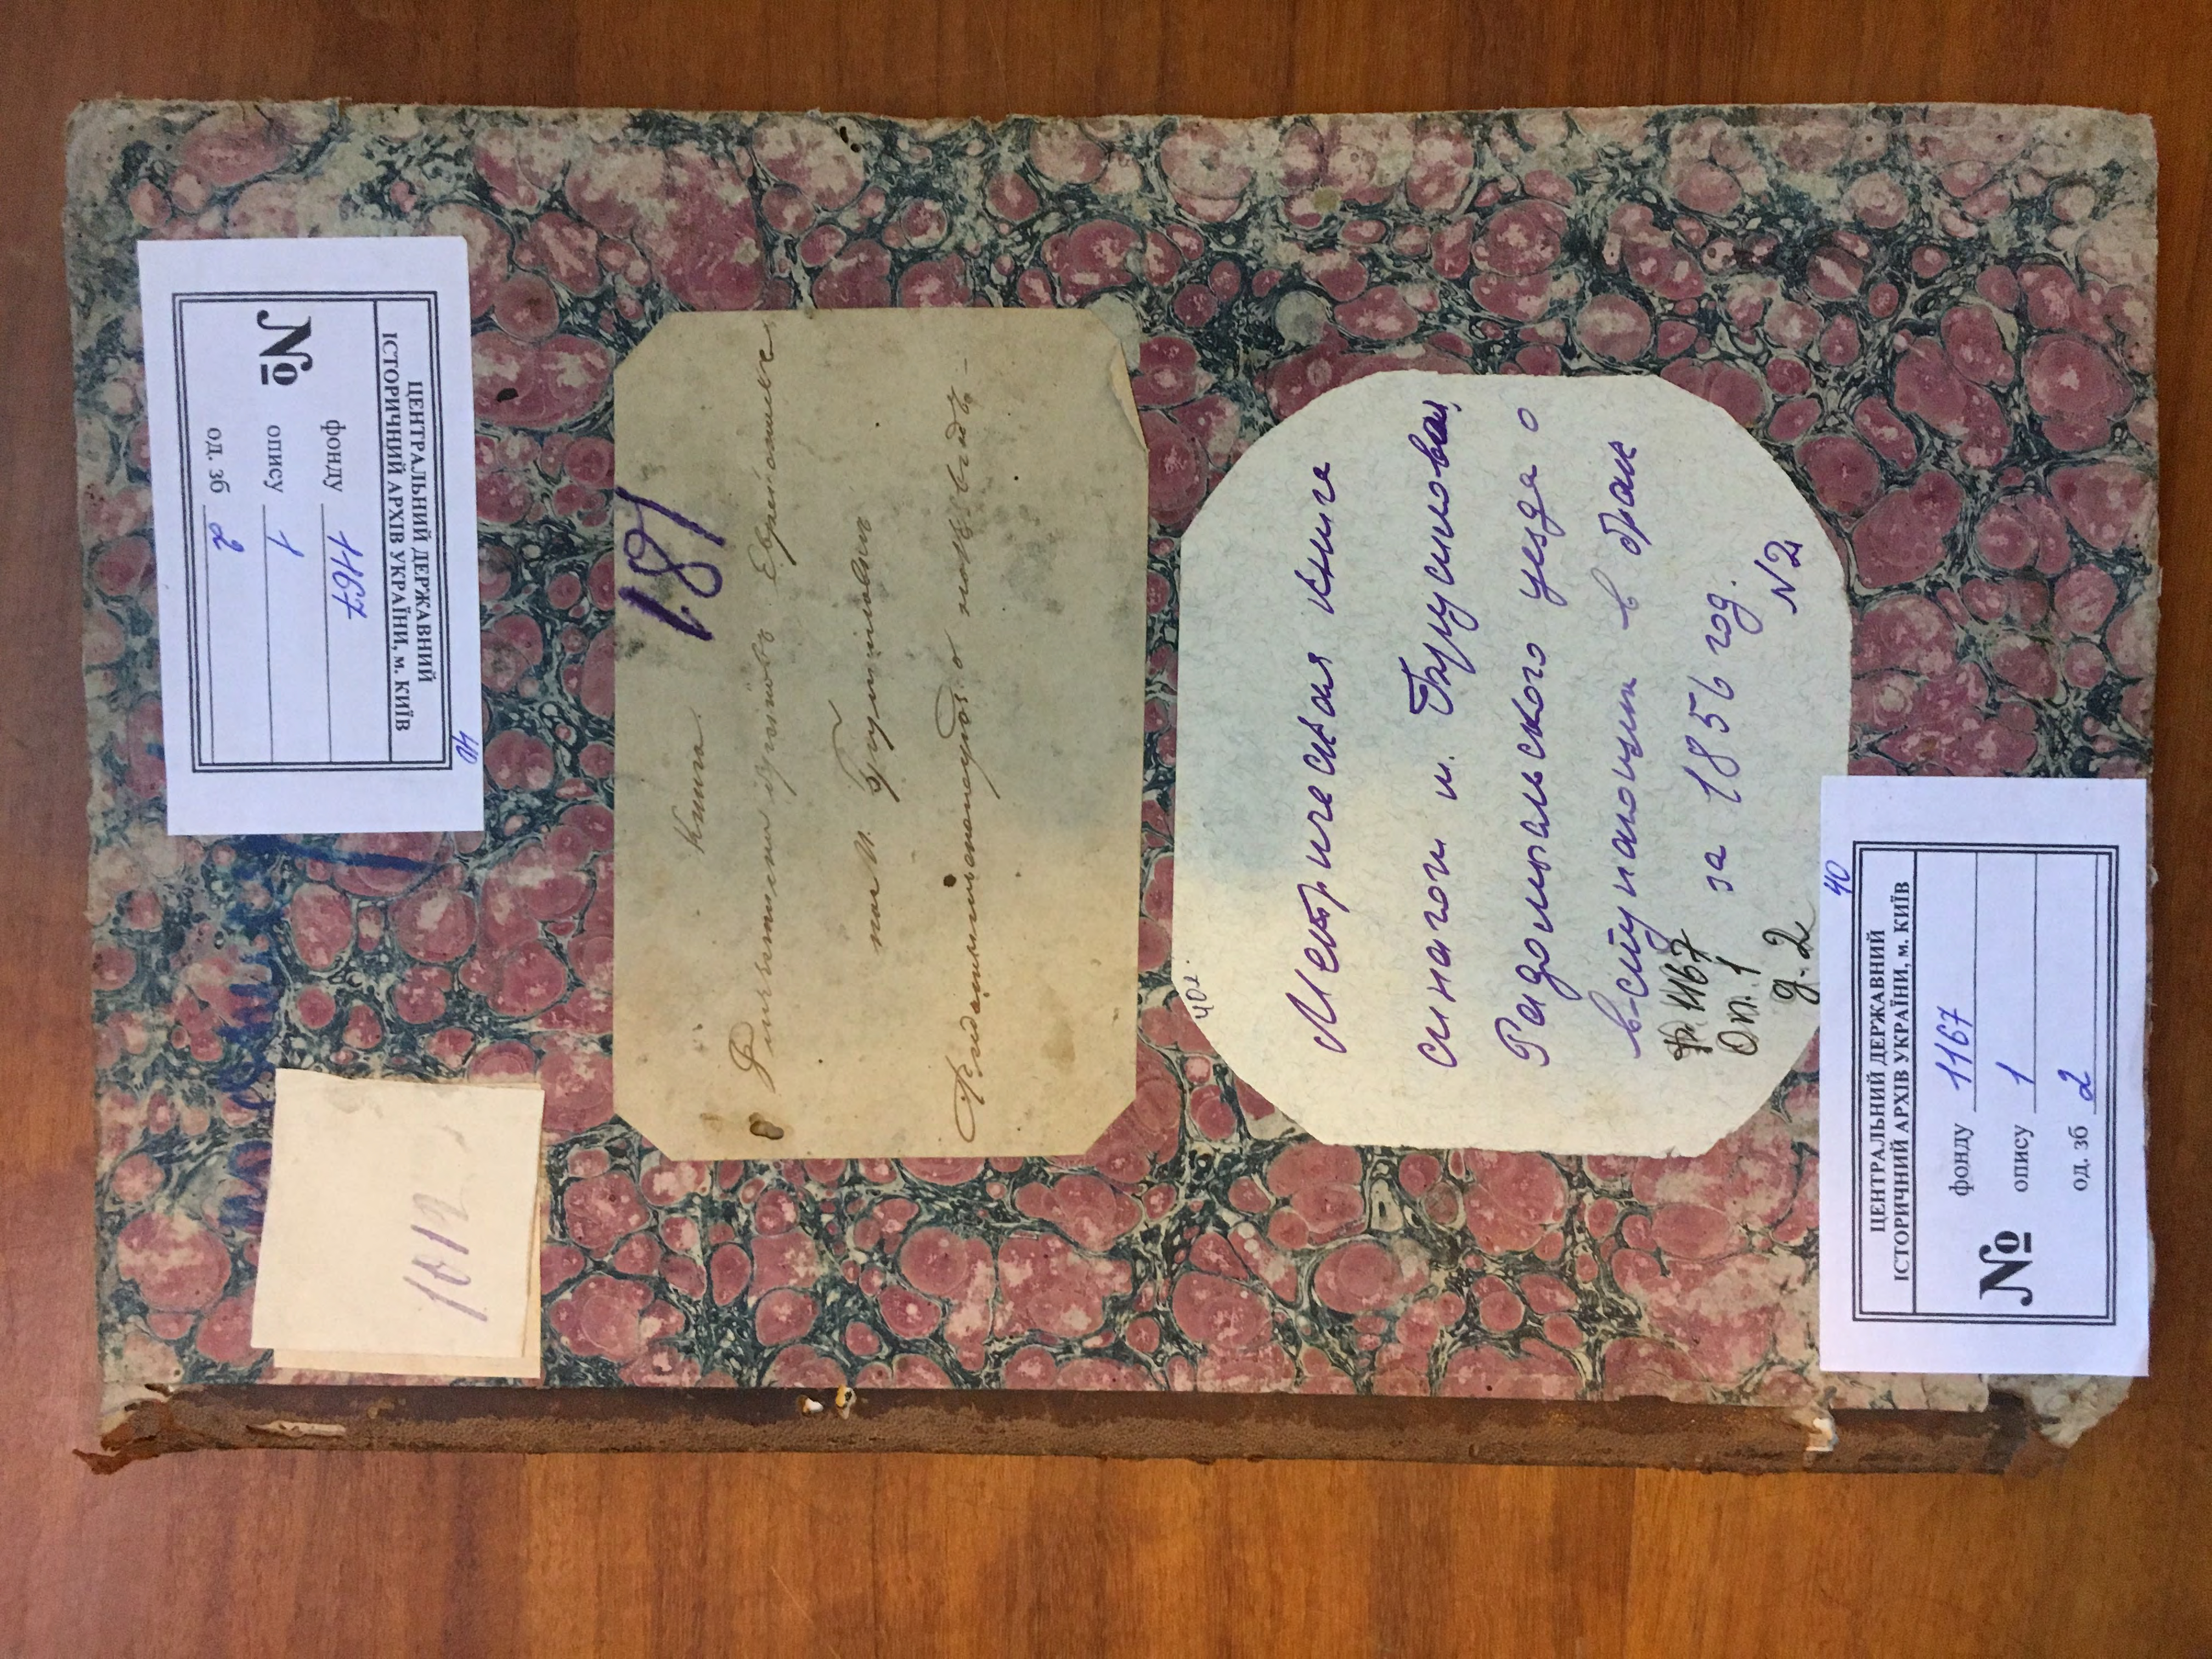 ЦЕНТРАЛЬНИЙ ДЕРЖАВНИЙ
ІСТОРИЧНИЙ АРХІВ УКРАЇНИ, м. КИЇВ
№
фонду 1167
опису 1
од. зб 2
40
1012
181
Книга
Еврейскаго
на М. Брусиловъ
о
40 л.
Метрическая книга
синагоги м. Брусилова,
Радомыльского уезда о
вступающих в брак
за 1856 год.
№2
Ф. 1167
Оп. 1
д. 2
40
ЦЕНТРАЛЬНИЙ ДЕРЖАВНИЙ
ІСТОРИЧНИЙ АРХІВ УКРАЇНИ, м. КИЇВ
№
фонду 1167
опису 1
од. зб 2